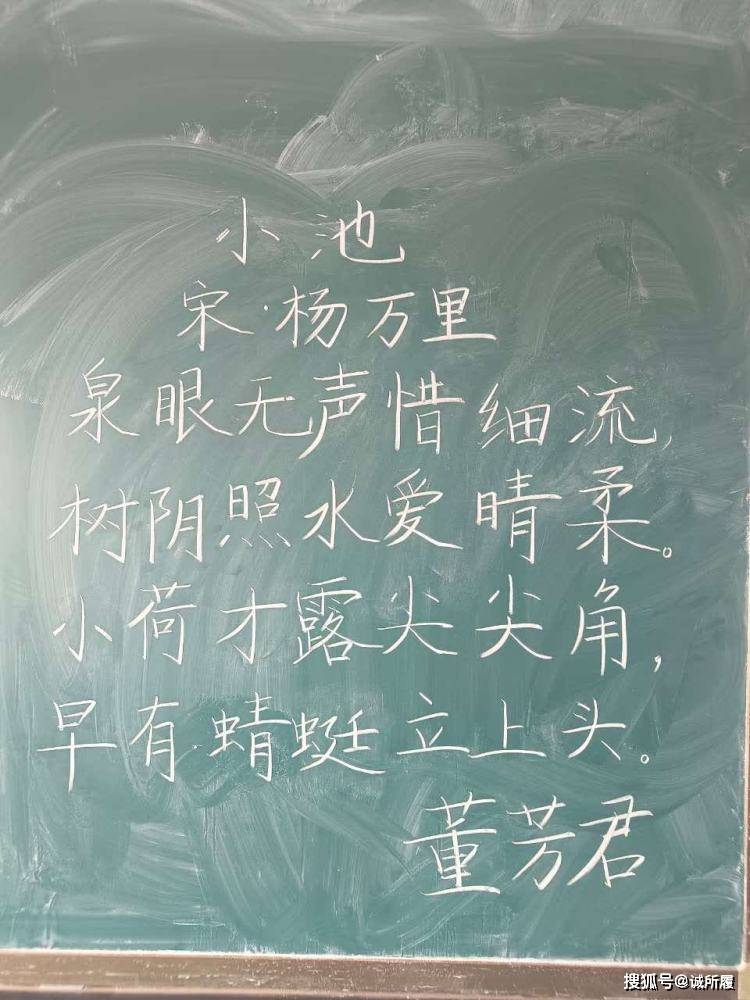 小池
宋·杨万里
泉眼无声惜细流,
树阴照水爱晴柔。
小荷才露尖尖角,
早有蜻蜓立上头。
董芳君
搜狐号@诚所履